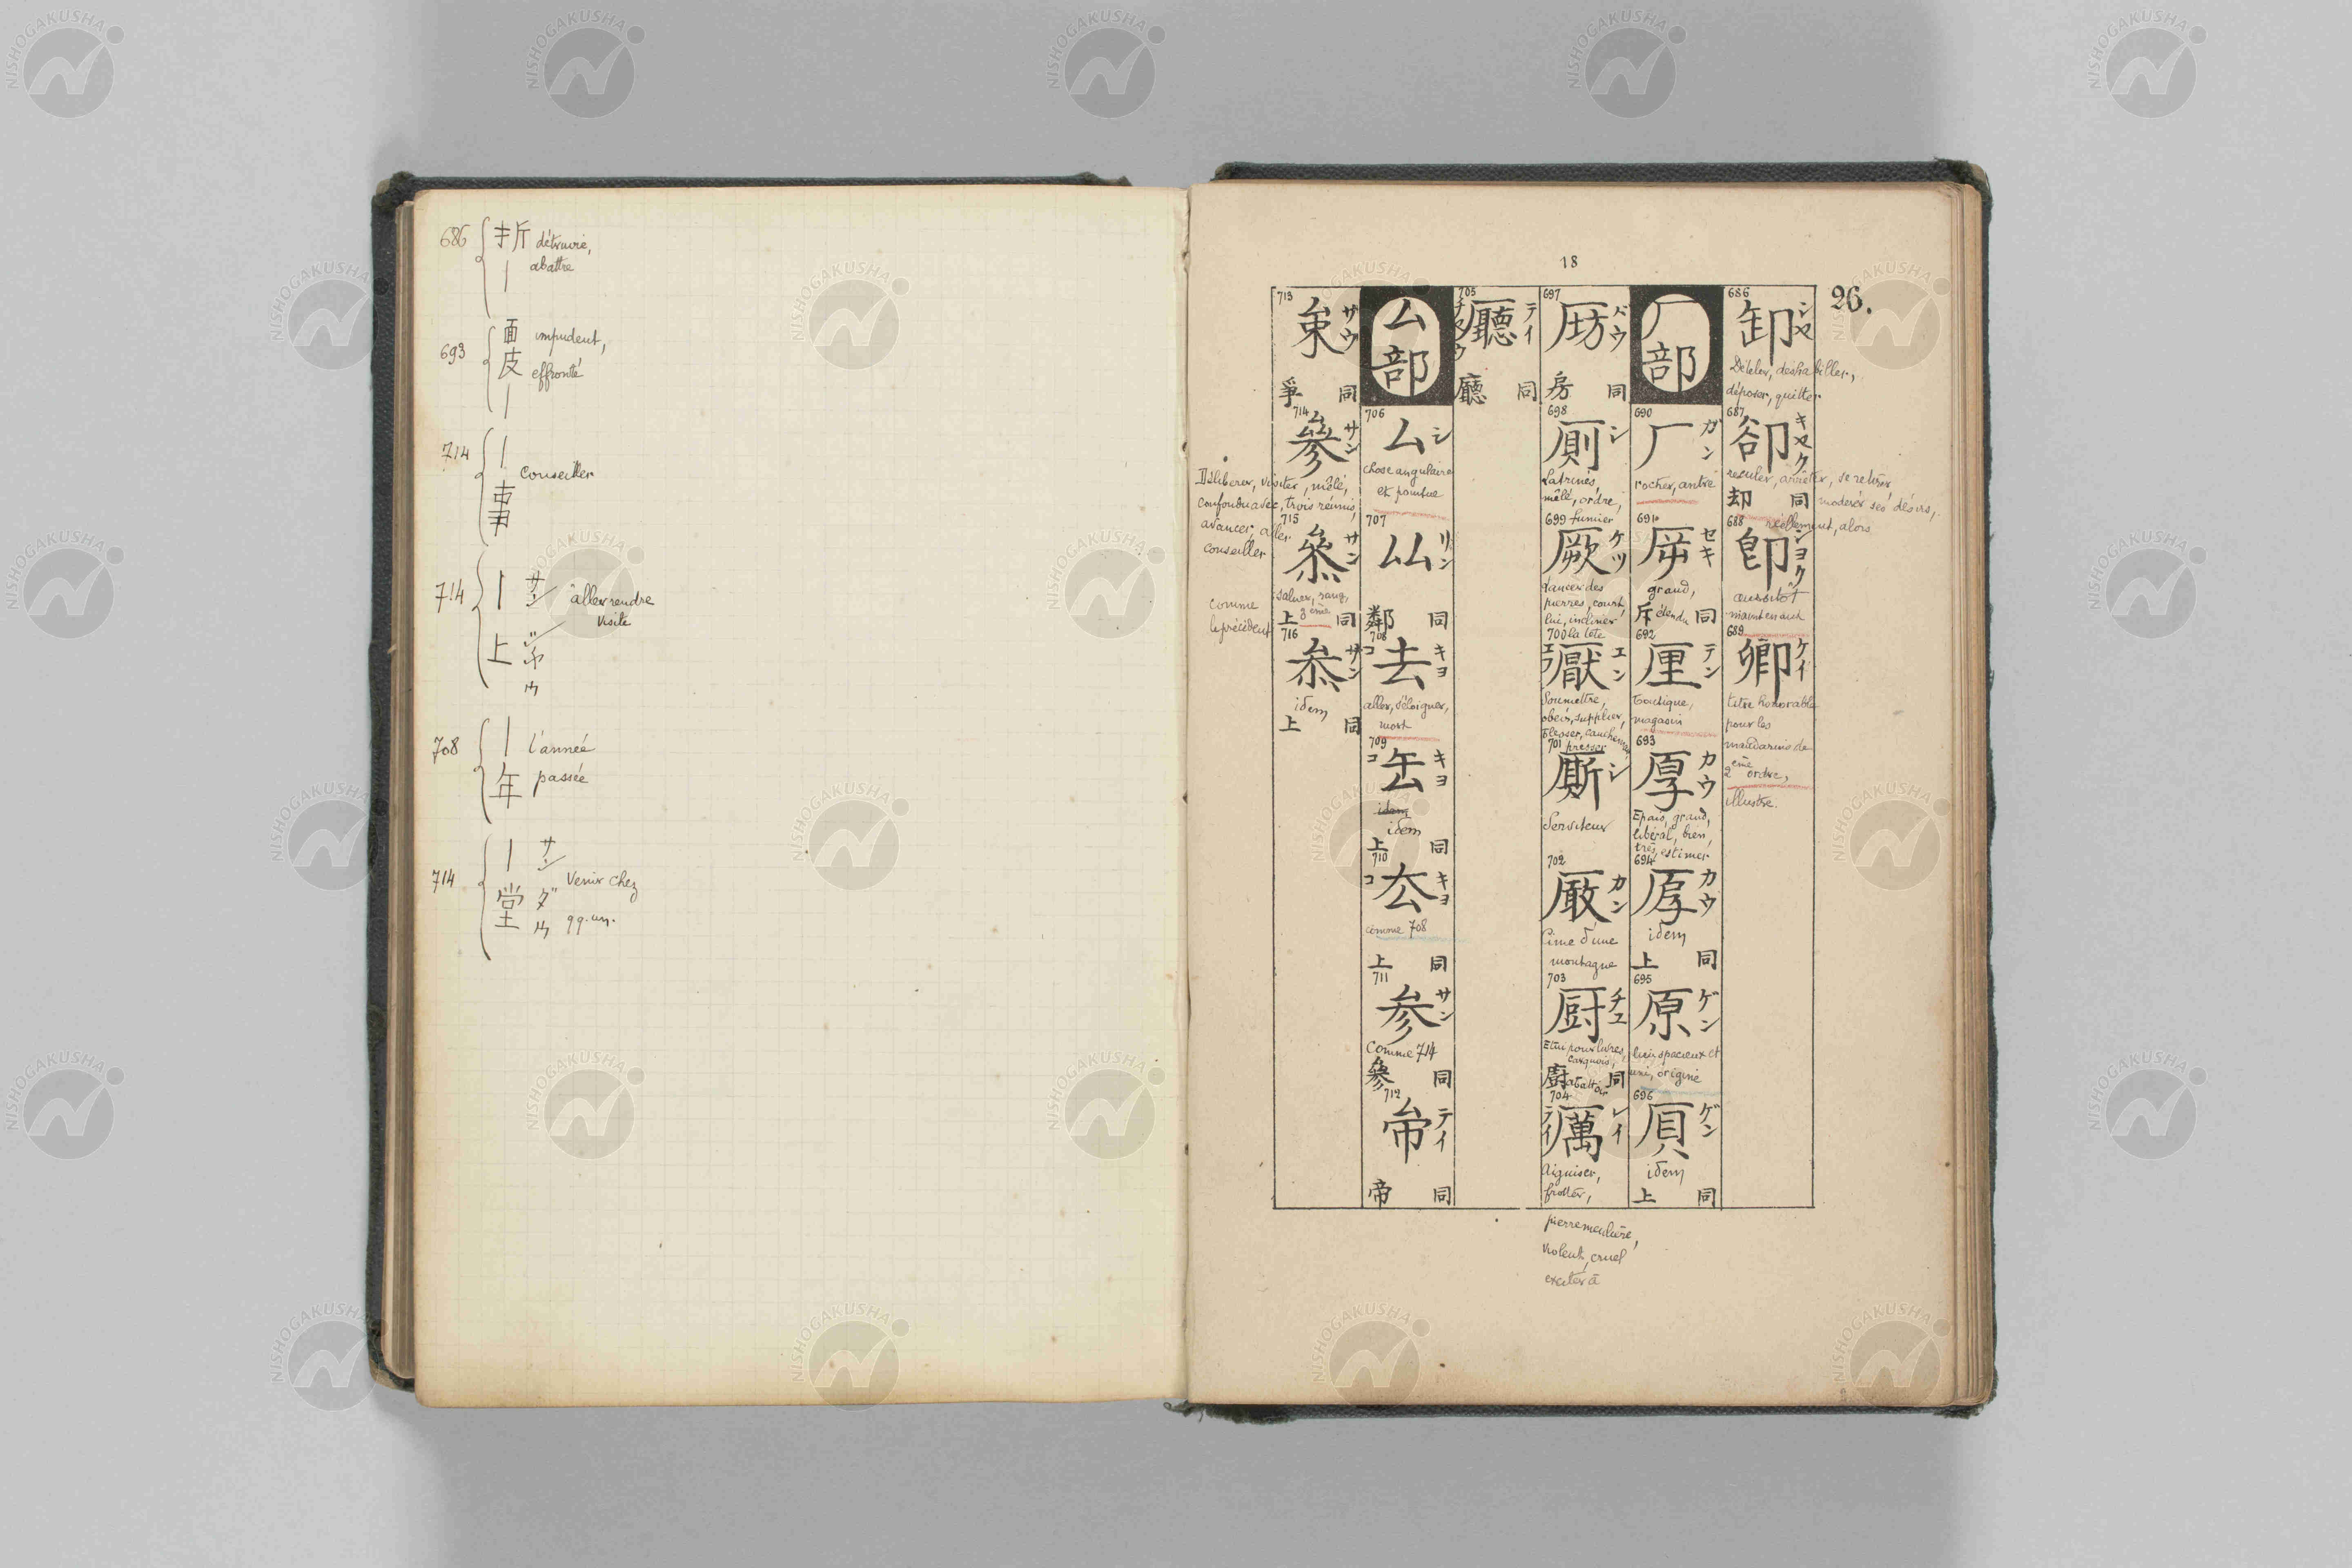 686 折 détruire,
丨 abattre
693 面 impudent,
皮 effronté
丨
714 丨 Conseiller
事
714 丨 サン aller rendre
visite
上 ジヤウ
708 丨 l'année
年 passée
714 丨 サン Venir chez
堂 ダウ qq. un.
18
26.
686 卸 シヤ
Dételer, déshabiller,
déposer, quitter
687 卻 キヤク
reculer, arrêter, se retirer,
却 同 modérer ses désirs,
réellement, alors
688 卽 シヨク
aussitôt
maintenant
689 卿 ケイ
titre honorable
pour les
mandarins de
2ème ordre,
illustre.
厂部
690 厂 ガン
rocher, antre
691 厈 セキ
grand,
斥 étendu 同
692 厘 テン
boutique,
magasin
693 厚 カウ
Epais, grand,
libéral, bien,
très, estimer
694 厚 カウ
idem
上 同
695 原 ゲン
lieu spacieux et
uni, origine
696 ゲン
idem
上 同
697 バウ
房 同
698 厠 シ
Latrines,
mêlé, ordre,
fumier
699 厥 ケツ
lancer des
pierres, court,
lui, incliner
la tête
700 厭 エン エフ
Soumettre,
obéir, supplier,
blesser, cauchemar,
presser
701 厮 シ
Serviteur
702 厰 カン
Cime d'une
montagne
703 厨 チユ
Etui pour livres,
carquois,
廚 abattoir 同
704 厲 レイ ライ
Aiguiser,
frotter,
pierre meulière,
violent, cruel
exciter à
705 廳 テイ チヤウ
廳 同
厶部
706 厶 シ
chose angulaire
et pointue
707 厸 リン
鄰 同
708 去 キヨ コ
aller, s'éloigner,
mort
709 キヨ コ
idem
idem
上 同
710 厺 キヨ コ
comme 708
上 同
711 参 サン
Comme 714
參 同
712 テイ
帝 同
713 サウ
爭 同
714 參 サン
Délibérer, visiter, mêlé,
confondu avec, trois réunis,
avancer, aller
conseiller
715 叅 サン
saluer, rang,
3ème
上 同
comme
le précédent
716 叅 サン
idem
上 同
NISHOGAKUSHA